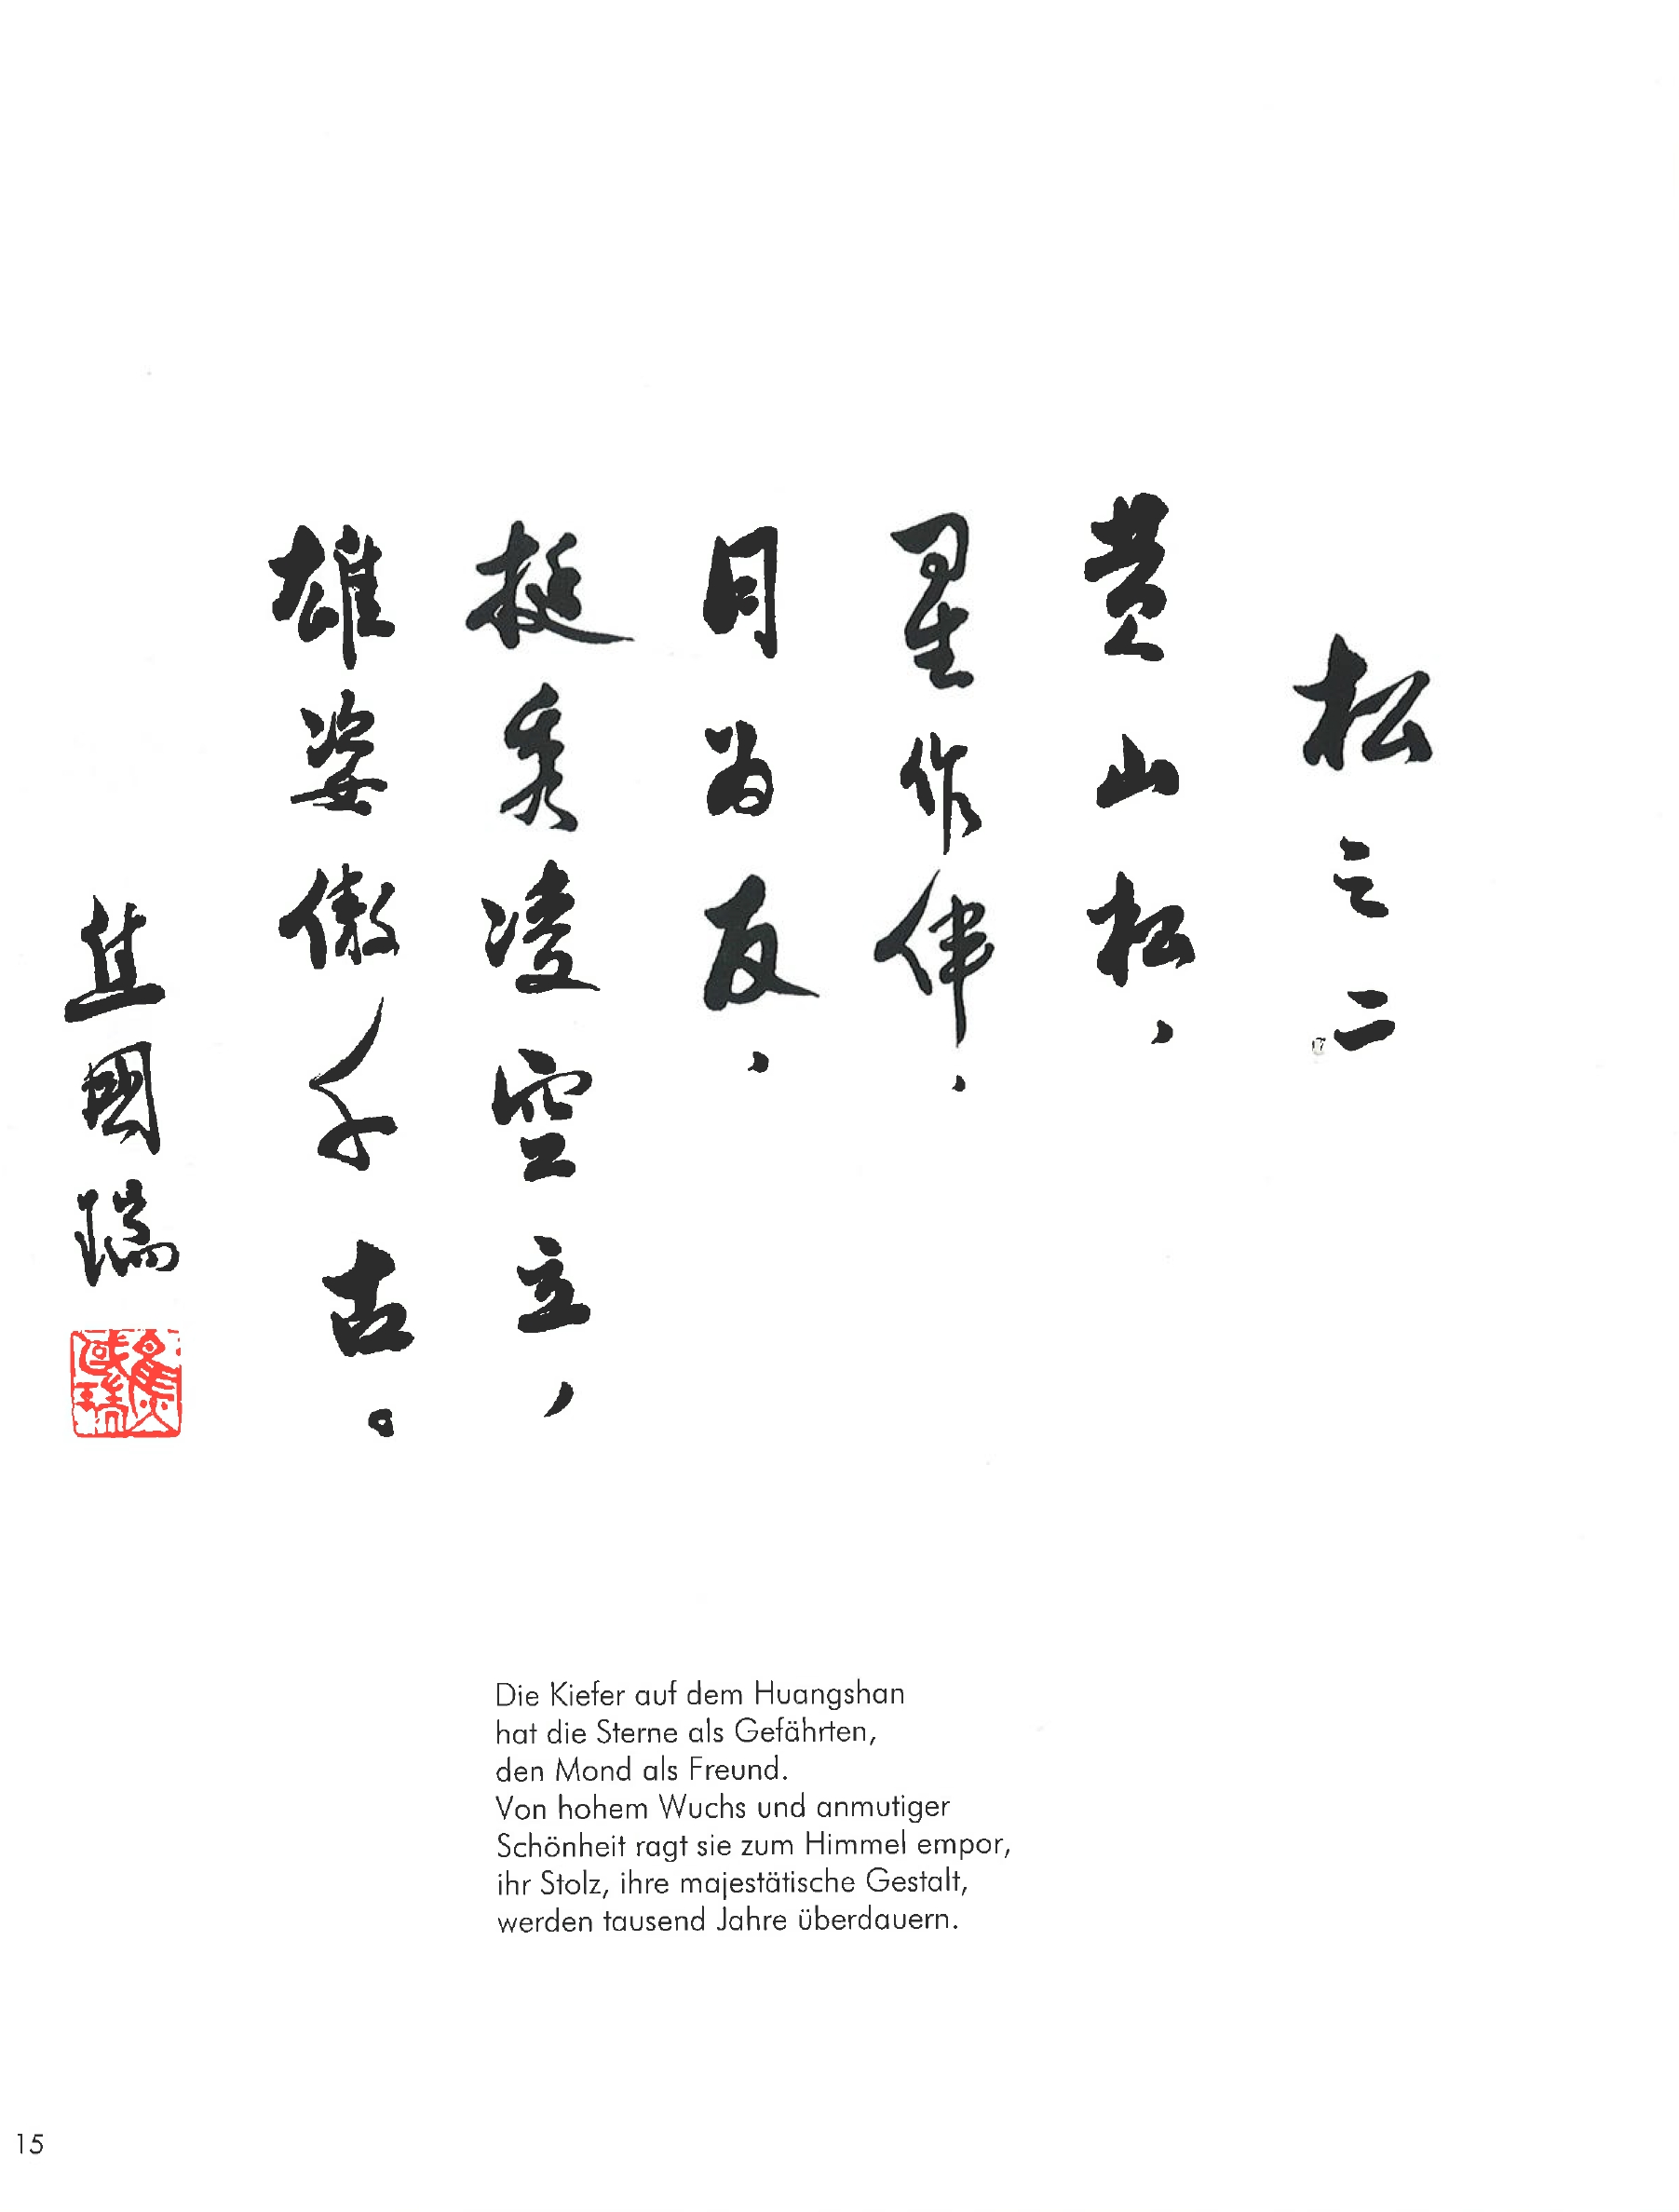 松之二
黄山松，
星作伴，
月为友，
挺秀凌空立，
雄姿傲千古。
焦國瑞
焦國瑞
Die Kiefer auf dem Huangshan
hat die Sterne als Gefährten,
den Mond als Freund.
Von hohem Wuchs und anmutiger
Schönheit ragt sie zum Himmel empor,
ihr Stolz, ihre majestätische Gestalt,
werden tausend Jahre überdauern.
15